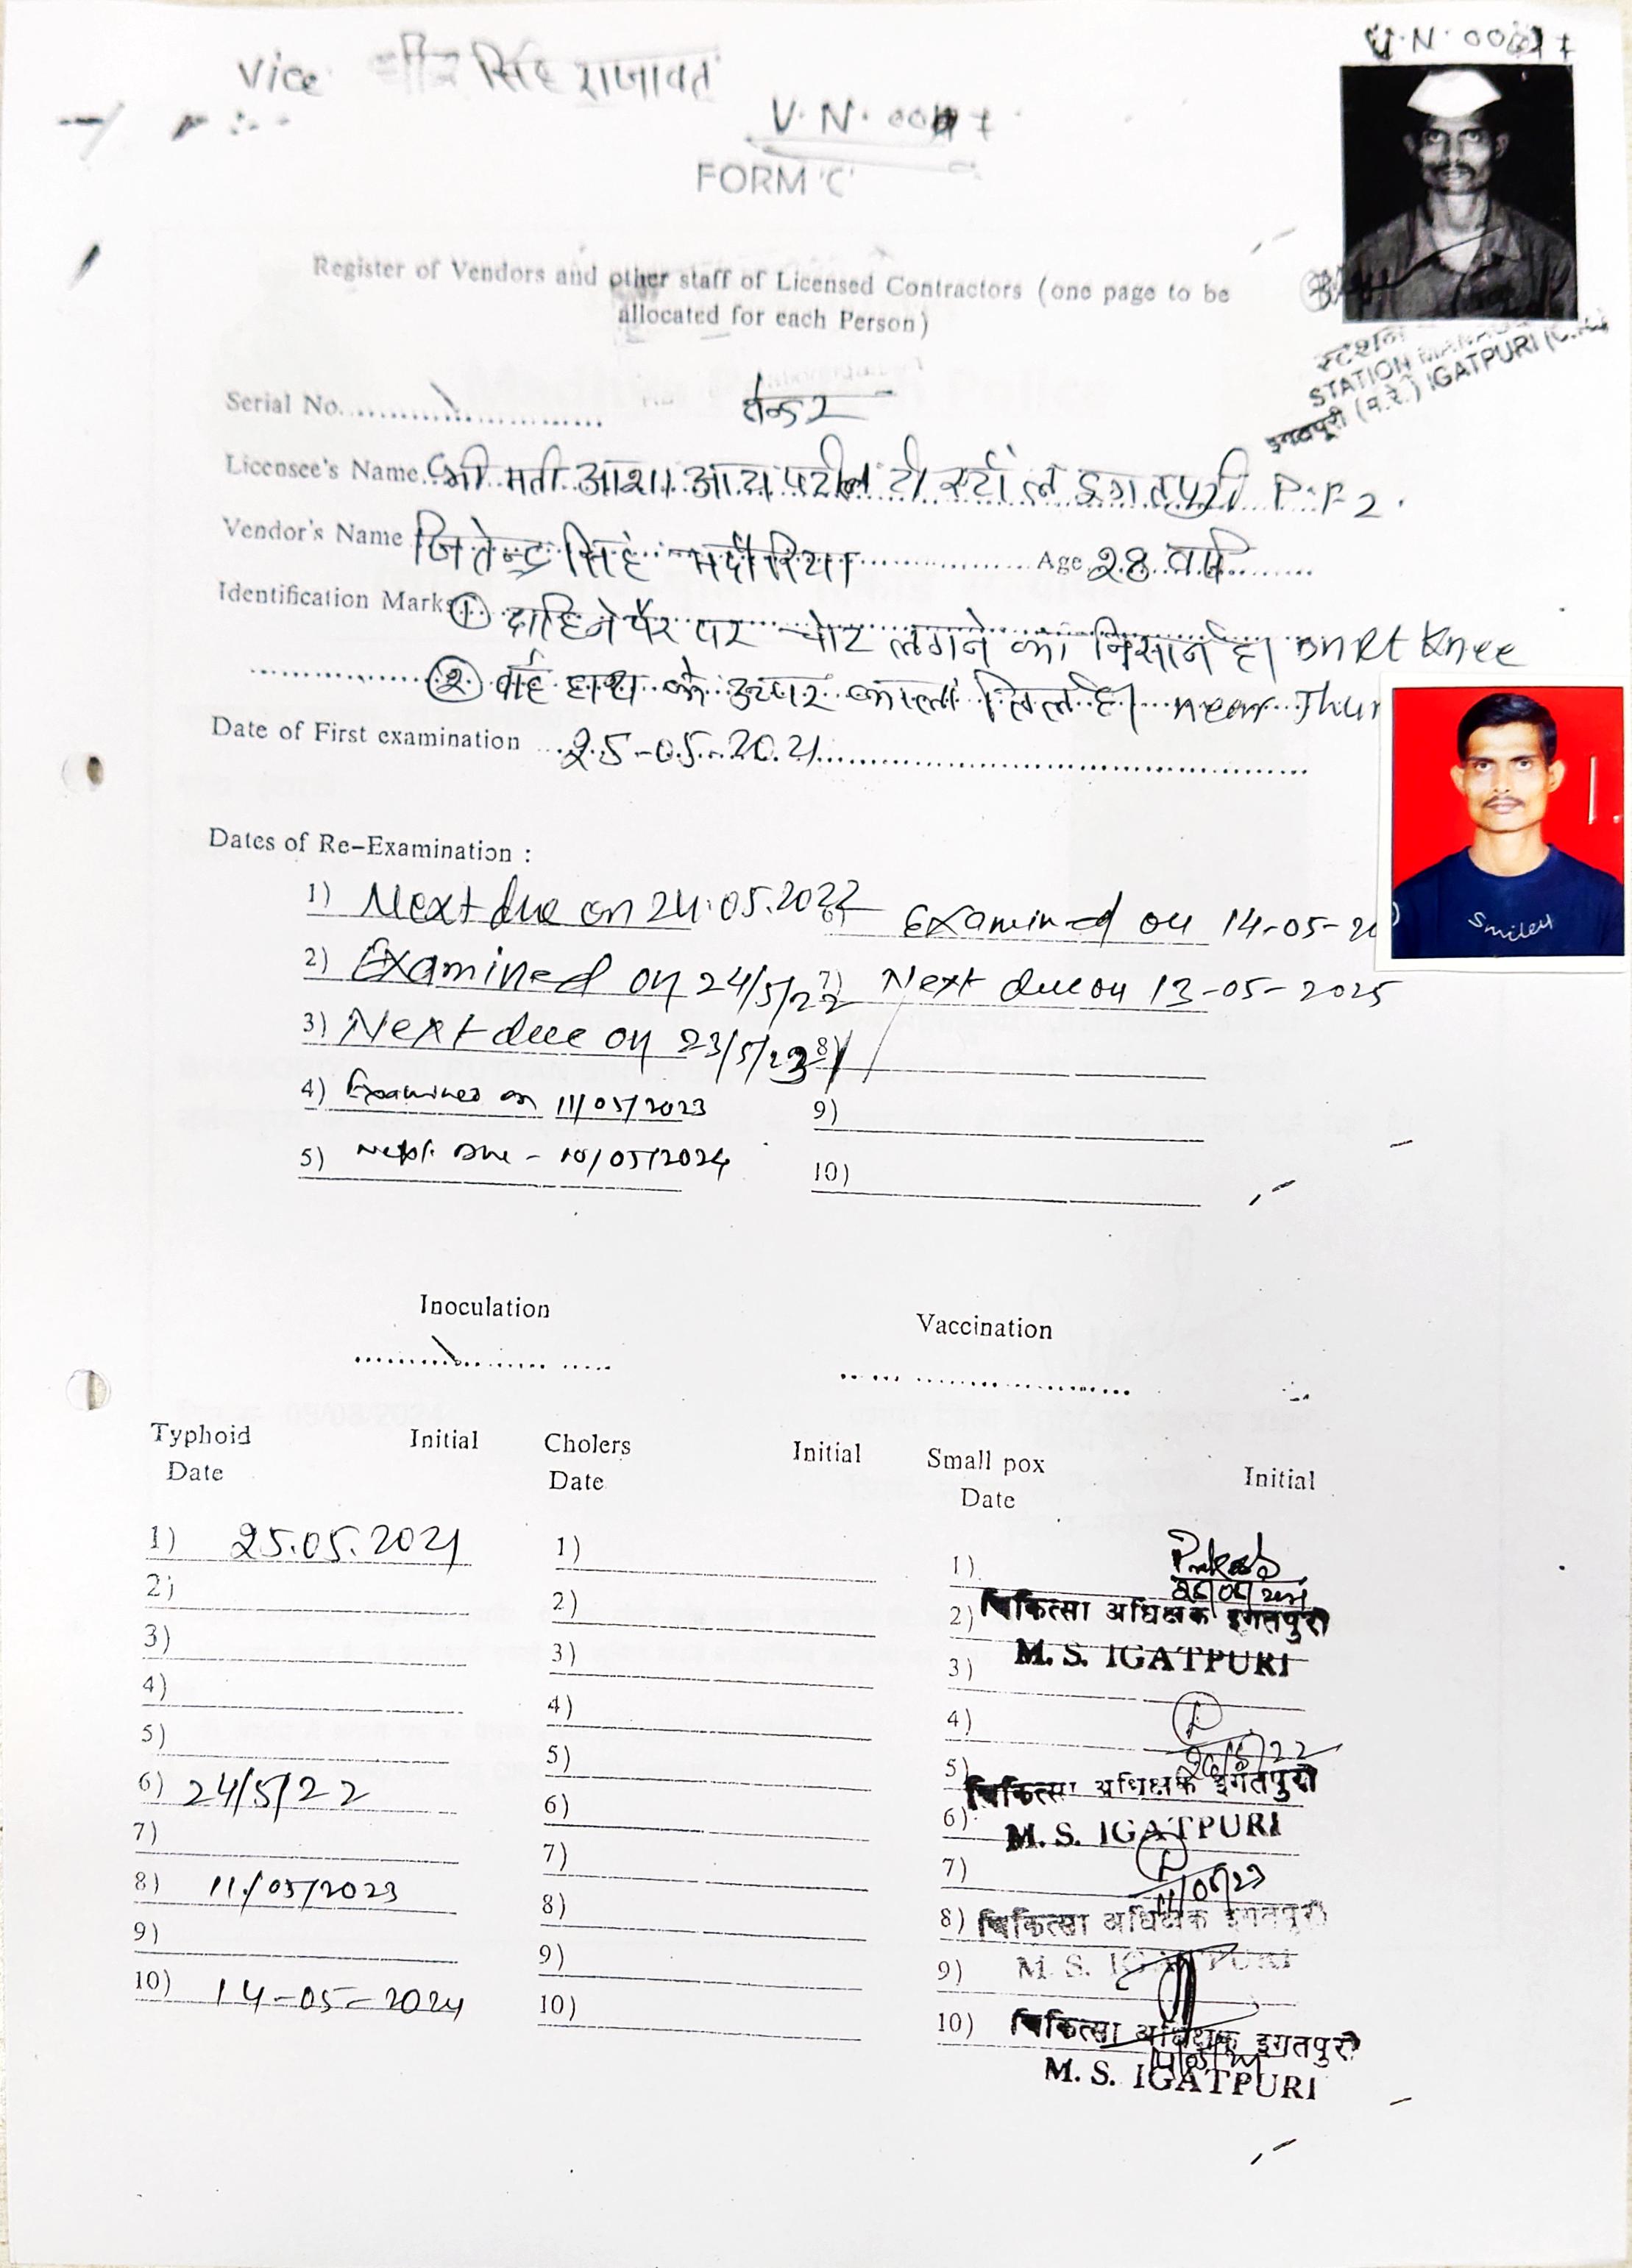 Vice सिंह राजावत
V.N. 00
V.N. 00
FORM 'C'
Register of Vendors and other staff of Licensed Contractors (one page to be
allocated for each Person)
स्टेशन
STATION MANAG
इगतपुरी (म.रे.) IGATPURI (C.R.)
Serial No.
वेन्डर
Licensee's Name श्री मती आशा आय पटील टी स्टॉल इगतपुरी P.F 2.
Vendor's Name जितेन्द्र सिंह भदौरिया Age 28 वर्ष
Identification Marks ① दाहिने पैर पर चोट लगने का निसान है। on Rt Knee
② बाई हाथ के उपर काला तिल है। near Thu
Date of First examination 25-05-2021
Dates of Re-Examination :
1) Next due on 24.05.2022 Examined on 14-05-20
2) Examined on 24/5/22 7) Next due on 13-05-2025
3) Next due on 23/5/23 8)
4) Examined on 11/05/2023 9)
5) Next Due - 10/05/2024 10)
Smiley
Inoculation Vaccination
Typhoid Initial Cholers Initial Small pox Initial
Date Date Date
1) 25.05.2021 1) 1)
2) 2) 2) चिकित्सा अधिक्षक इगतपुरी
3) 3) 3) M. S. IGATPURI
4) 4) 4)
5) 5) 5) 26/5/22
चिकित्सा अधिक्षक इगतपुरी
6) 24/5/22 6) 6) M. S. IGATPURI
7) 7) 7) 11/05/23
8) 11/05/2023 8) 8) चिकित्सा अधिक्षक इगतपुरी
9) 9) 9) M. S. IGATPURI
10) 14-05-2024 10) 10) चिकित्सा अधिक्षक इगतपुरी
M. S. IGATPURI